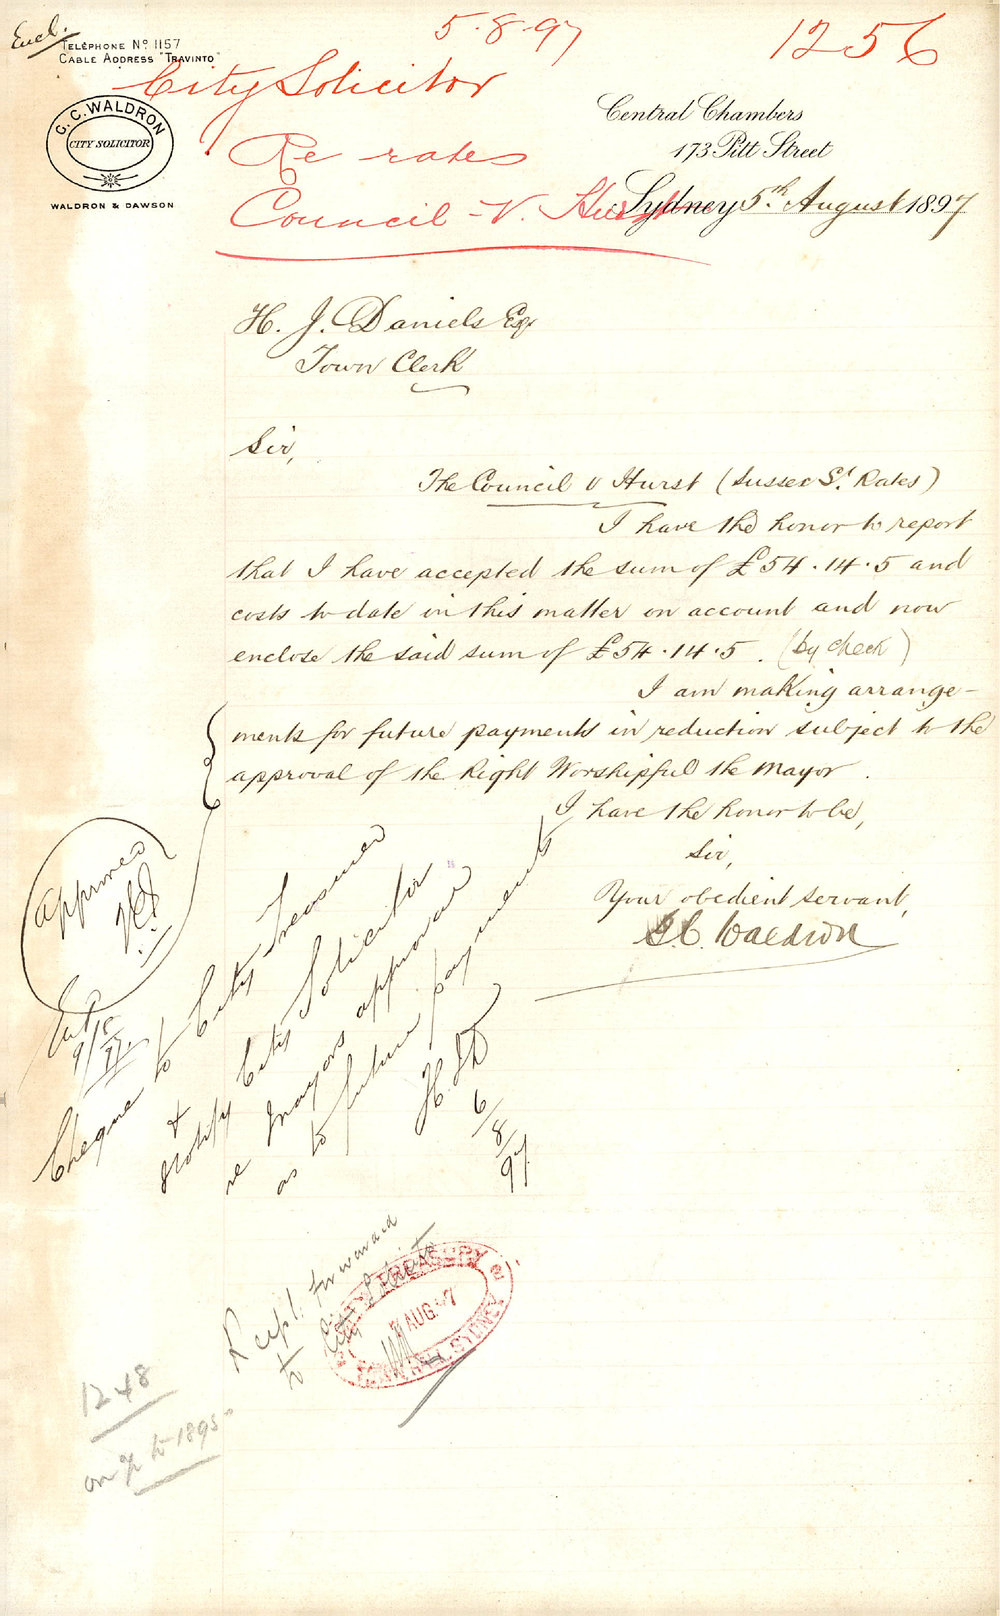 Encl.
5.8.97
1256
TELEPHONE No 1157
CABLE ADDRESS "TRAVINTO"
City Solicitor
G. C. WALDRON
CITY SOLICITOR
WALDRON & DAWSON
Central Chambers
173 Pitt Street
Re rates
Sydney 5th August 1897
Council v. Hurst
H. J. Daniels Esqr
Town Clerk
Sir,
The Council v Hurst (Sussex St. Rates)
I have the honor to report
that I have accepted the sum of £54.14.5 and
costs to date in this matter on account and now
enclose the said sum of £54.14.5. (by check)
I am making arrange-
ments for future payments in reduction subject to the
approval of the Right Worshipful the Mayor.
I have the honor to be,
Sir,
Your obedient servant,
G. C. Waldron
approved
9/8/97.
Cheque to City Treasurer
&
Notify City Solicitor
re Mayors approval
as to future payments
H.J.D
6/8/97
Rcpt. forwarded
to City Solicitor
CITY TREASURY
7 AUG. 97
TOWN HALL, SYDNEY
1248
on a/c to 1895